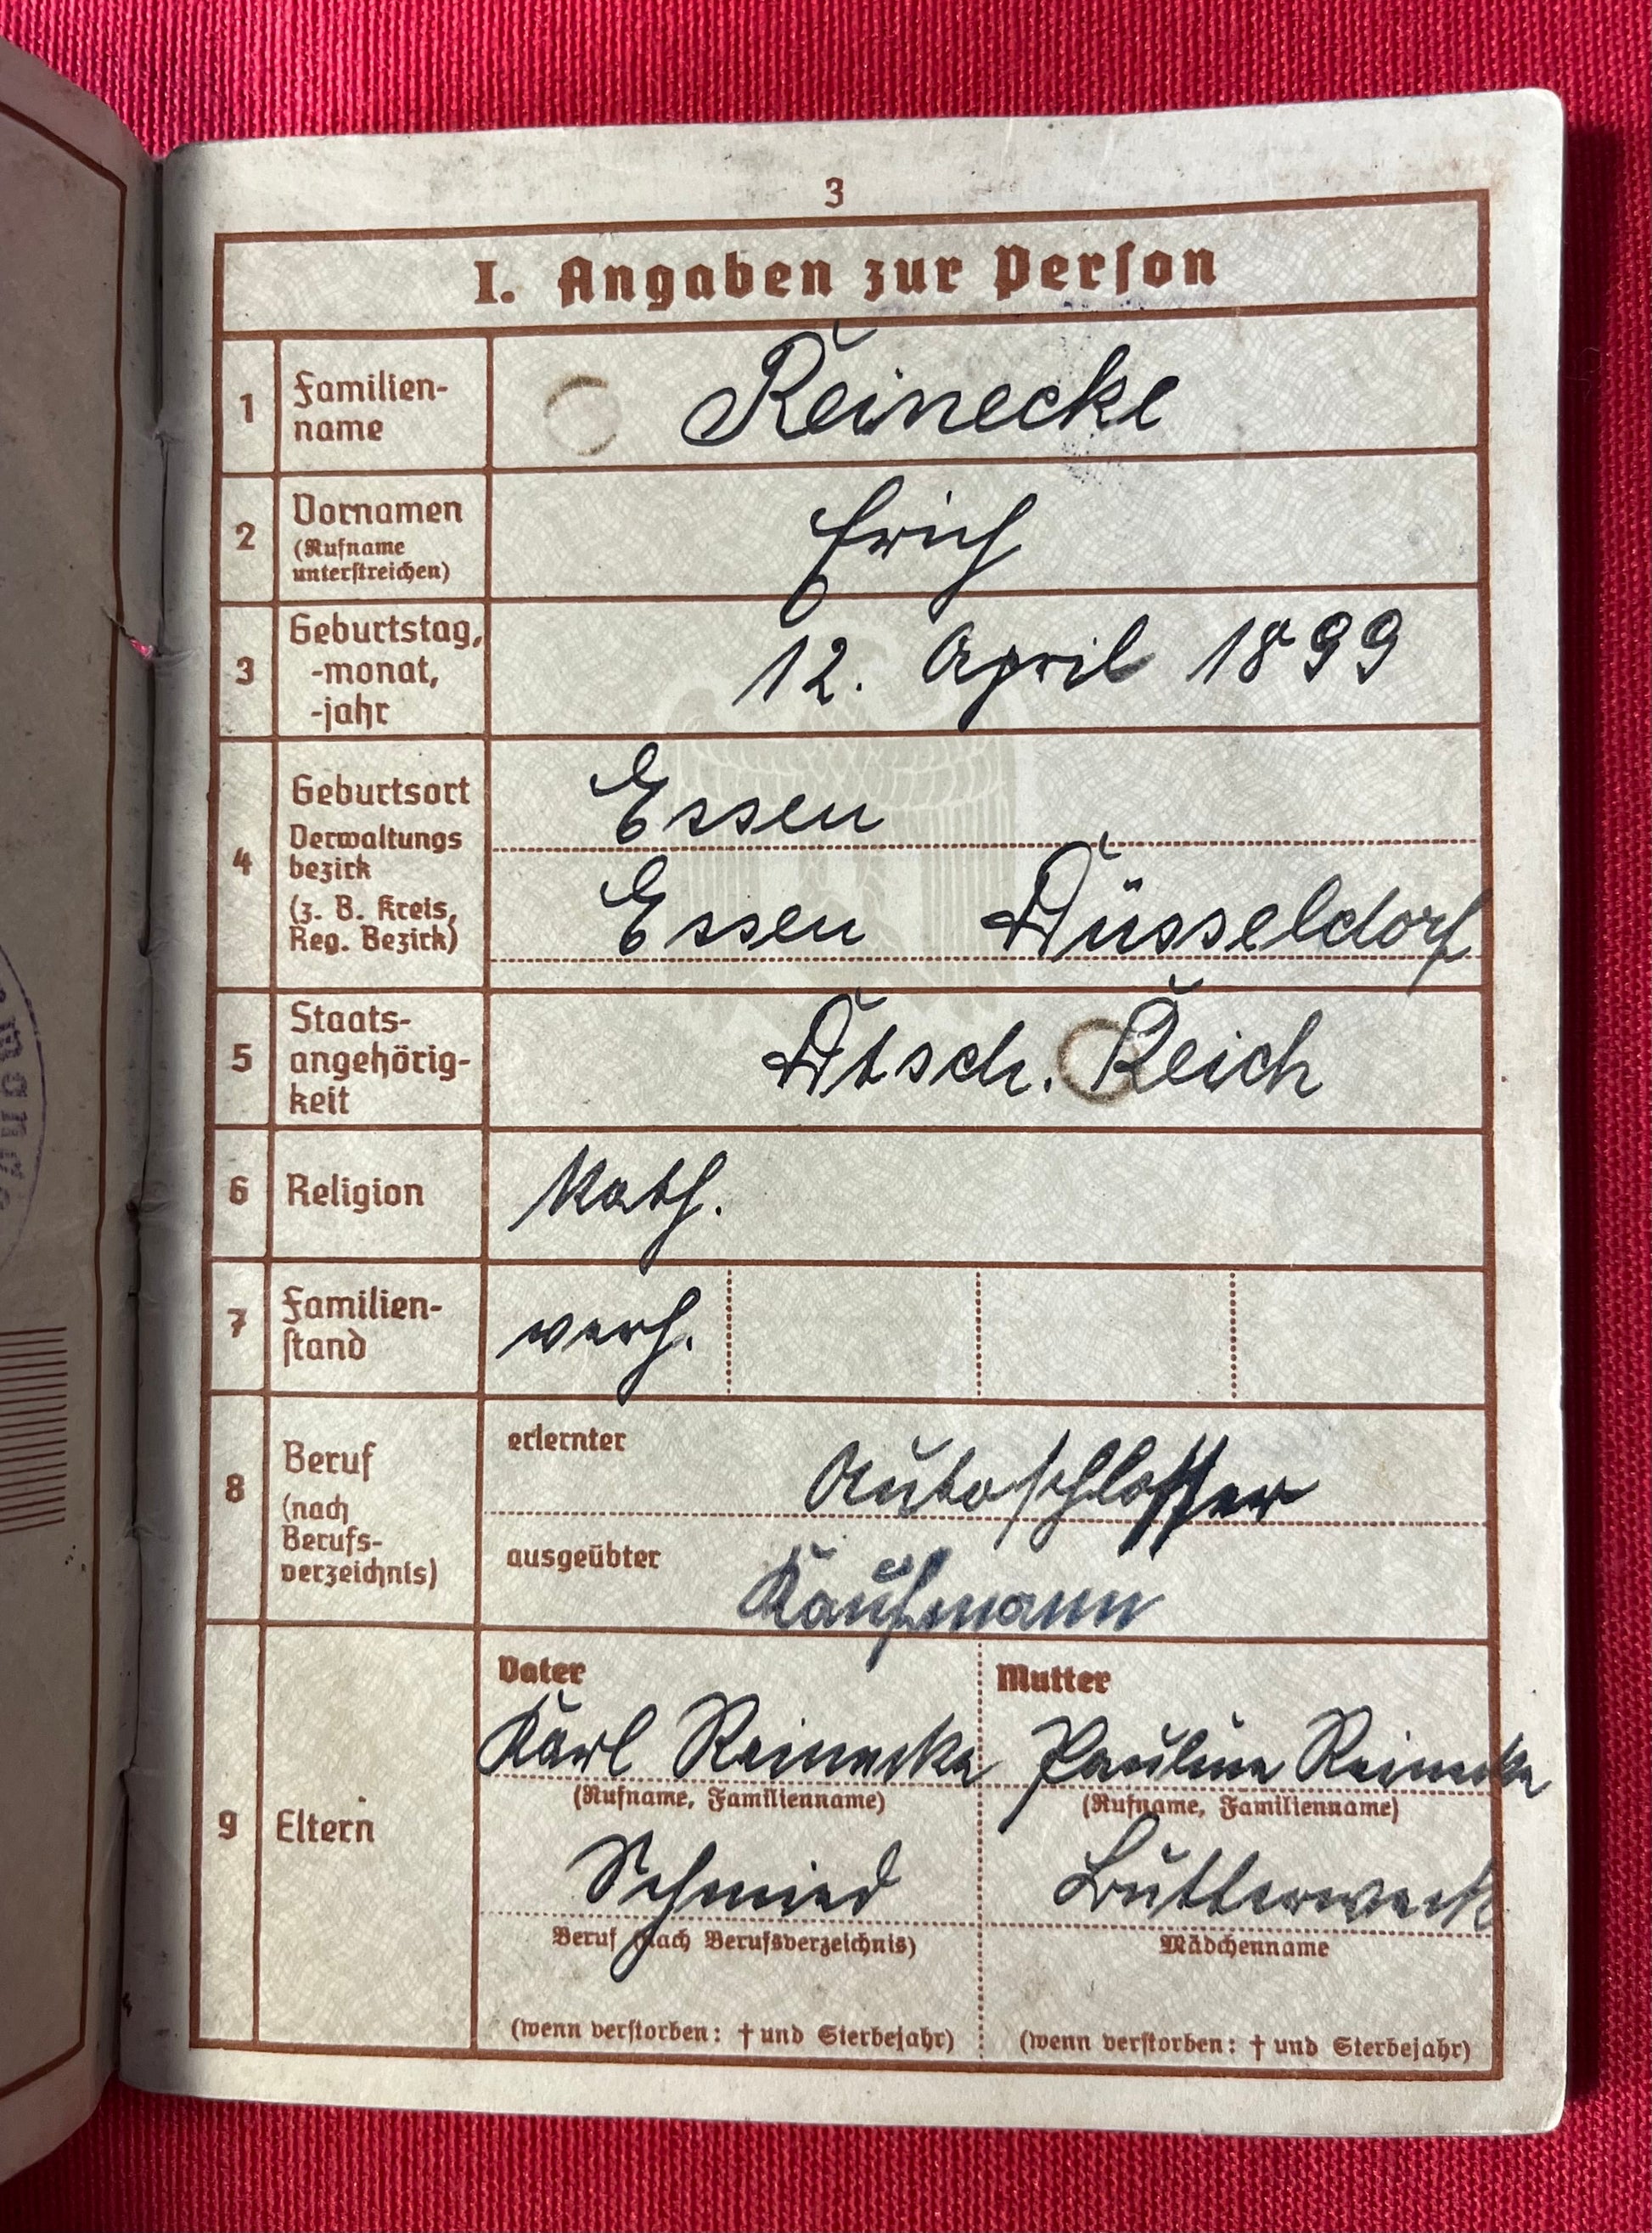 3
I. Angaben zur Person
1
Familien-
name
Reinecke
2
Vornamen
(Rufname
unterstreichen)
Erich
3
Geburtstag,
-monat,
-jahr
12. April 1899
4
Geburtsort
Verwaltungs
bezirk
(z. B. Kreis,
Reg. Bezirk)
Essen
Essen Düsseldorf
5
Staats-
angehörig-
keit
Dtsch. Reich
6
Religion
kath.
7
Familien-
stand
verh.
8
Beruf
(nach
Berufs-
verzeichnis)
erlernter
Autoschlosser
ausgeübter
Kaufmann
9
Eltern
Vater
Karl Reinecke
(Rufname, Familienname)
Schmied
Beruf (nach Berufsverzeichnis)
(wenn verstorben: † und Sterbejahr)
Mutter
Pauline Reinecke
(Rufname, Familienname)
Butterweck
Mädchenname
(wenn verstorben: † und Sterbejahr)